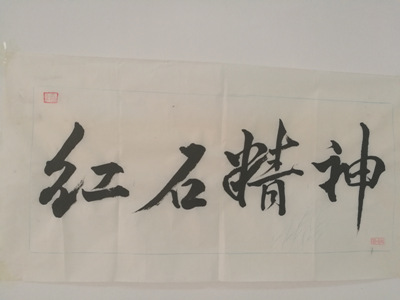 红石精神